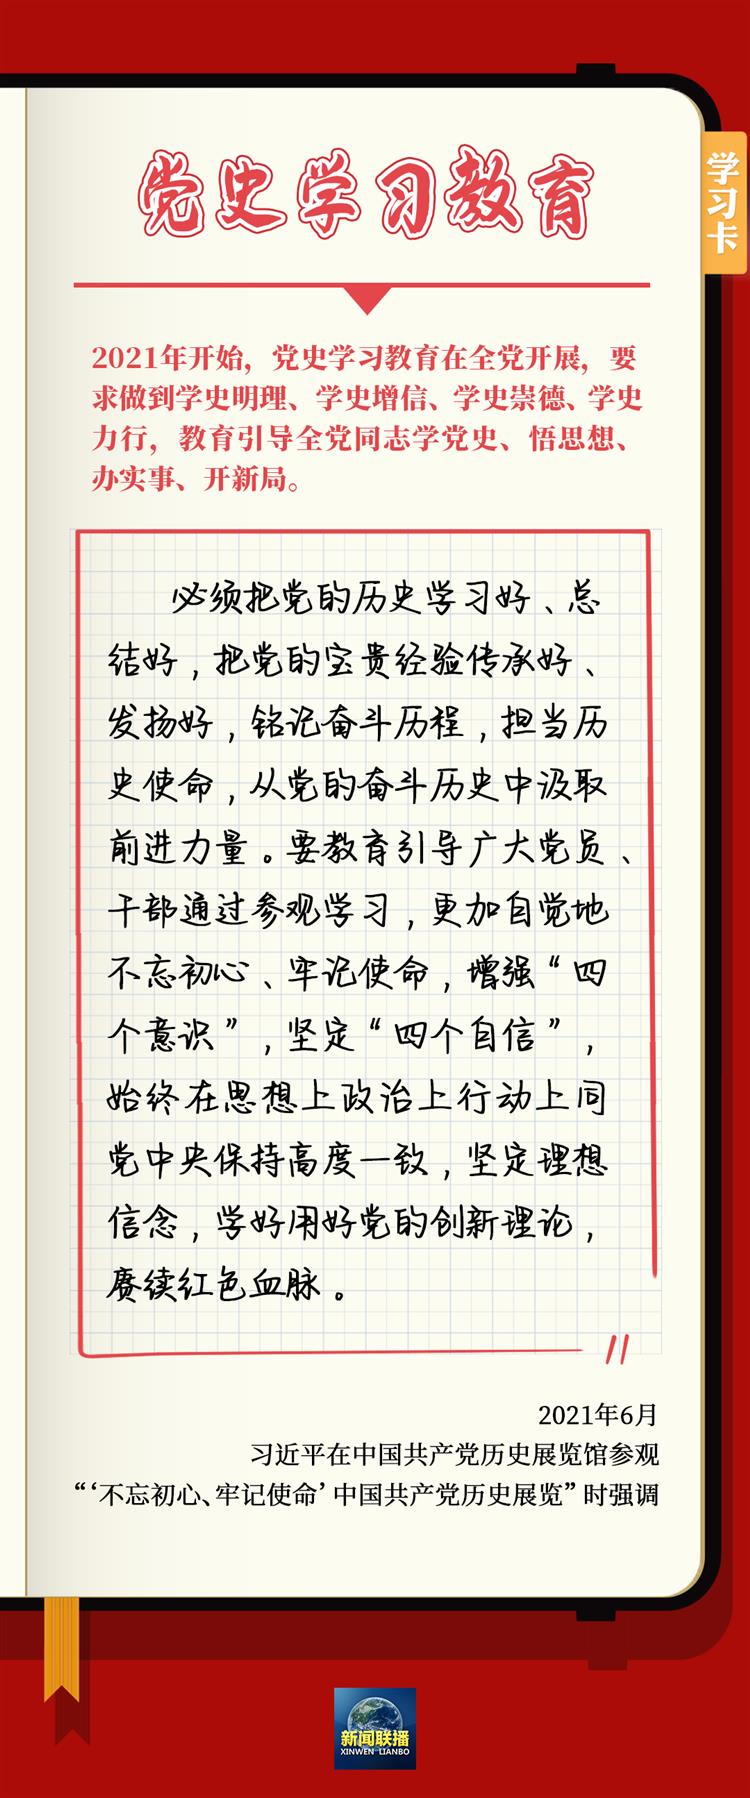 党史学习教育
学习卡
2021年开始，党史学习教育在全党开展，要
求做到学史明理、学史增信、学史崇德、学史
力行，教育引导全党同志学党史、悟思想、
办实事、开新局。
必须把党的历史学习好、总
结好，把党的宝贵经验传承好、
发扬好，铭记奋斗历程，担当历
史使命，从党的奋斗历史中汲取
前进力量。要教育引导广大党员、
干部通过参观学习，更加自觉地
不忘初心、牢记使命，增强“四
个意识”，坚定“四个自信”，
始终在思想上政治上行动上同
党中央保持高度一致，坚定理想
信念，学好用好党的创新理论，
赓续红色血脉。
2021年6月
习近平在中国共产党历史展览馆参观
“‘不忘初心、牢记使命’中国共产党历史展览”时强调
新闻联播
XINWEN LIANBO